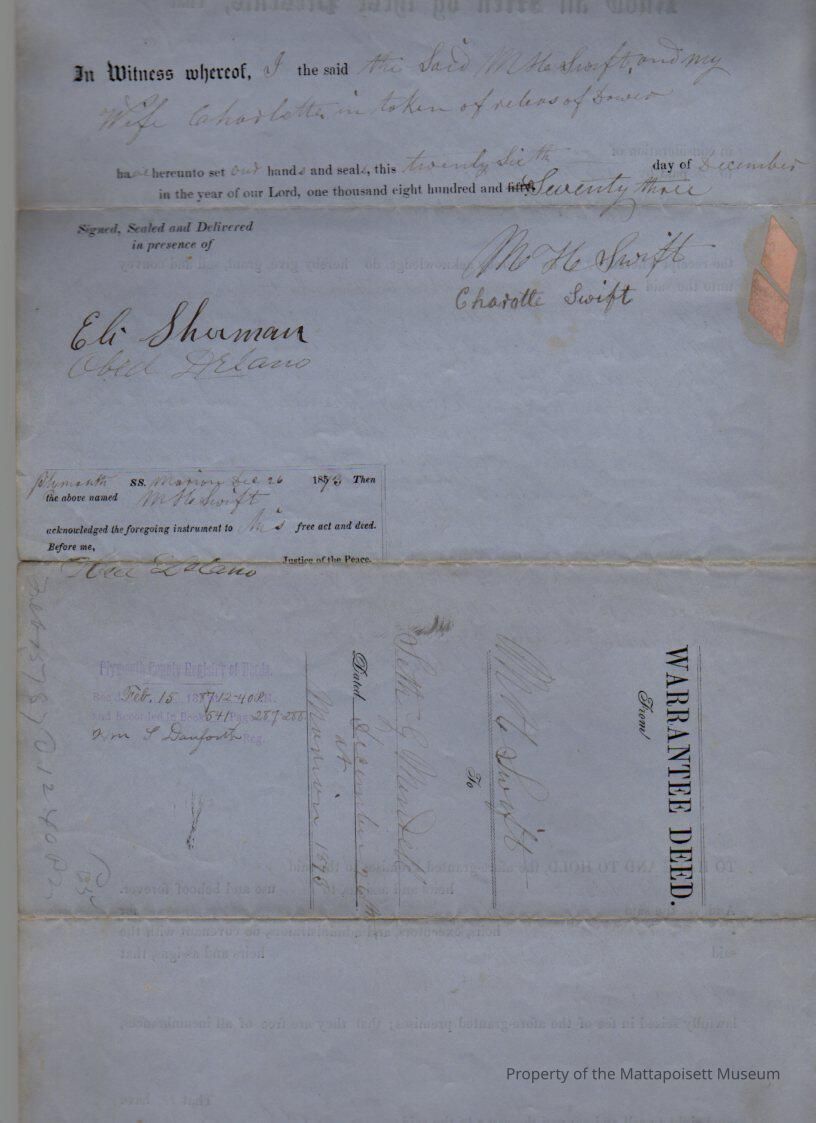 In Witness whereof, I the said the Said M H Swift, and my
Wife Charlotte in token of release of Dower
have hereunto set our hands and seals, this twenty Sixth day of December
in the year of our Lord, one thousand eight hundred and fifty Seventy three
Signed, Sealed and Delivered
in presence of
M H Swift
Charotte Swift
Eli Sherman
Obed Delano
Plymouth SS. Marion Dec 26 1873 Then
the above named M H Swift
acknowledged the foregoing instrument to his free act and deed.
Before me,
Justice of the Peace.
Obed Delano
WARRANTEE DEED.
From
M H Swift
To
Seth
Dated December 26th
at
Marion 1873
Plymouth County Registry of Deeds.
Rec'd Feb. 15 1887 12-40 P.M.
and Recorded in Book 541 Page 287-288
Wm S Danforth Reg.
Property of the Mattapoisett Museum